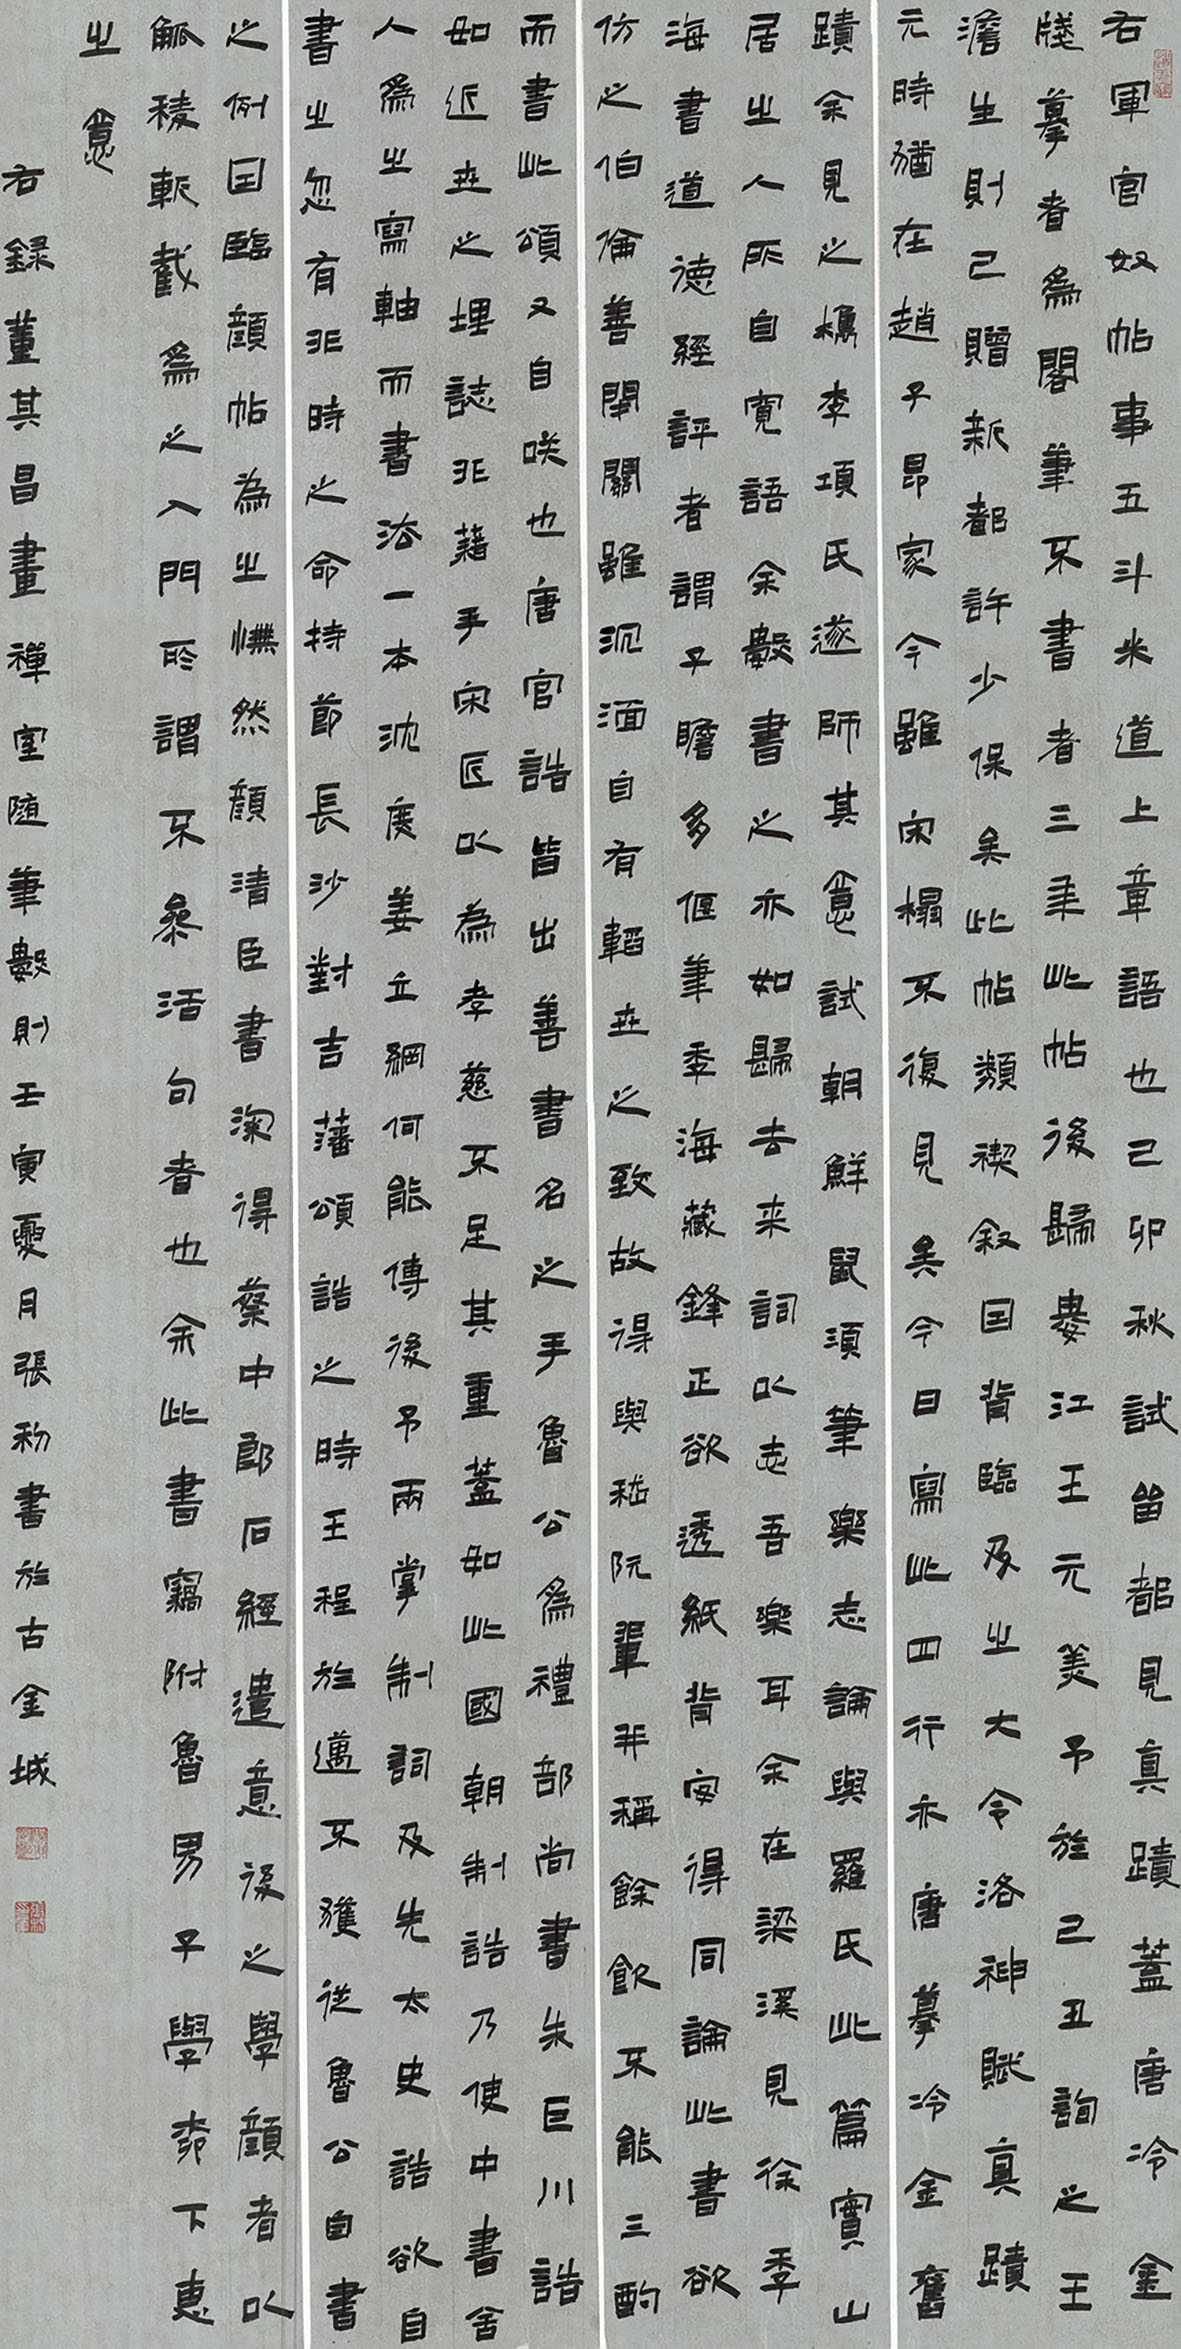 右軍官奴帖事五斗米道上章語也己卯秋試留都見真蹟蓋唐冷金
牋摹者為閣筆不書者三年此帖後歸婁江王元美予於己丑詢之王
澹生則已贈新都許少保矣此帖類禊敘因背臨及之大令洛神賦真蹟
元時猶在趙子昂家今雖宋榻不復見矣今日寫此四行亦唐摹冷金舊
蹟余見之檇李項氏遂師其意試朝鮮鼠須筆樂志論與羅氏此篇實山
居之人所自寬語余數書之亦如歸去来詞以志吾樂耳余在梁溪見徐季
海書道德經評者謂子瞻多偃筆季海藏鋒正欲透紙背安得同論此書欲
仿之伯倫善閉關雖沉湎自有韜世之致故得與嵇阮輩非稱餘飲不能三酌
而書此頌又自咲也唐官誥皆出善書名之手魯公為禮部尚書朱巨川誥
如近世之埋誌非藉手宋匠以為孝慈不足其重蓋如此國朝制誥乃使中書舍
人為之寫軸而書沿一本沈度姜立綱何能傳後予兩掌制詞及先太史誥欲自
書之忽有非時之命持節長沙對吉藩頌誥之時王程於邁不獲從魯公自書
之例因臨顏帖為之憮然顏清臣書深得蔡中郎石經遺意後之學顏者以
觚稜斬截為之入門所謂不參活句者也余此書竊附魯男子學柳下惠
之意
右錄董其昌畫禪室隨筆數則壬寅夏月張初書於古金城